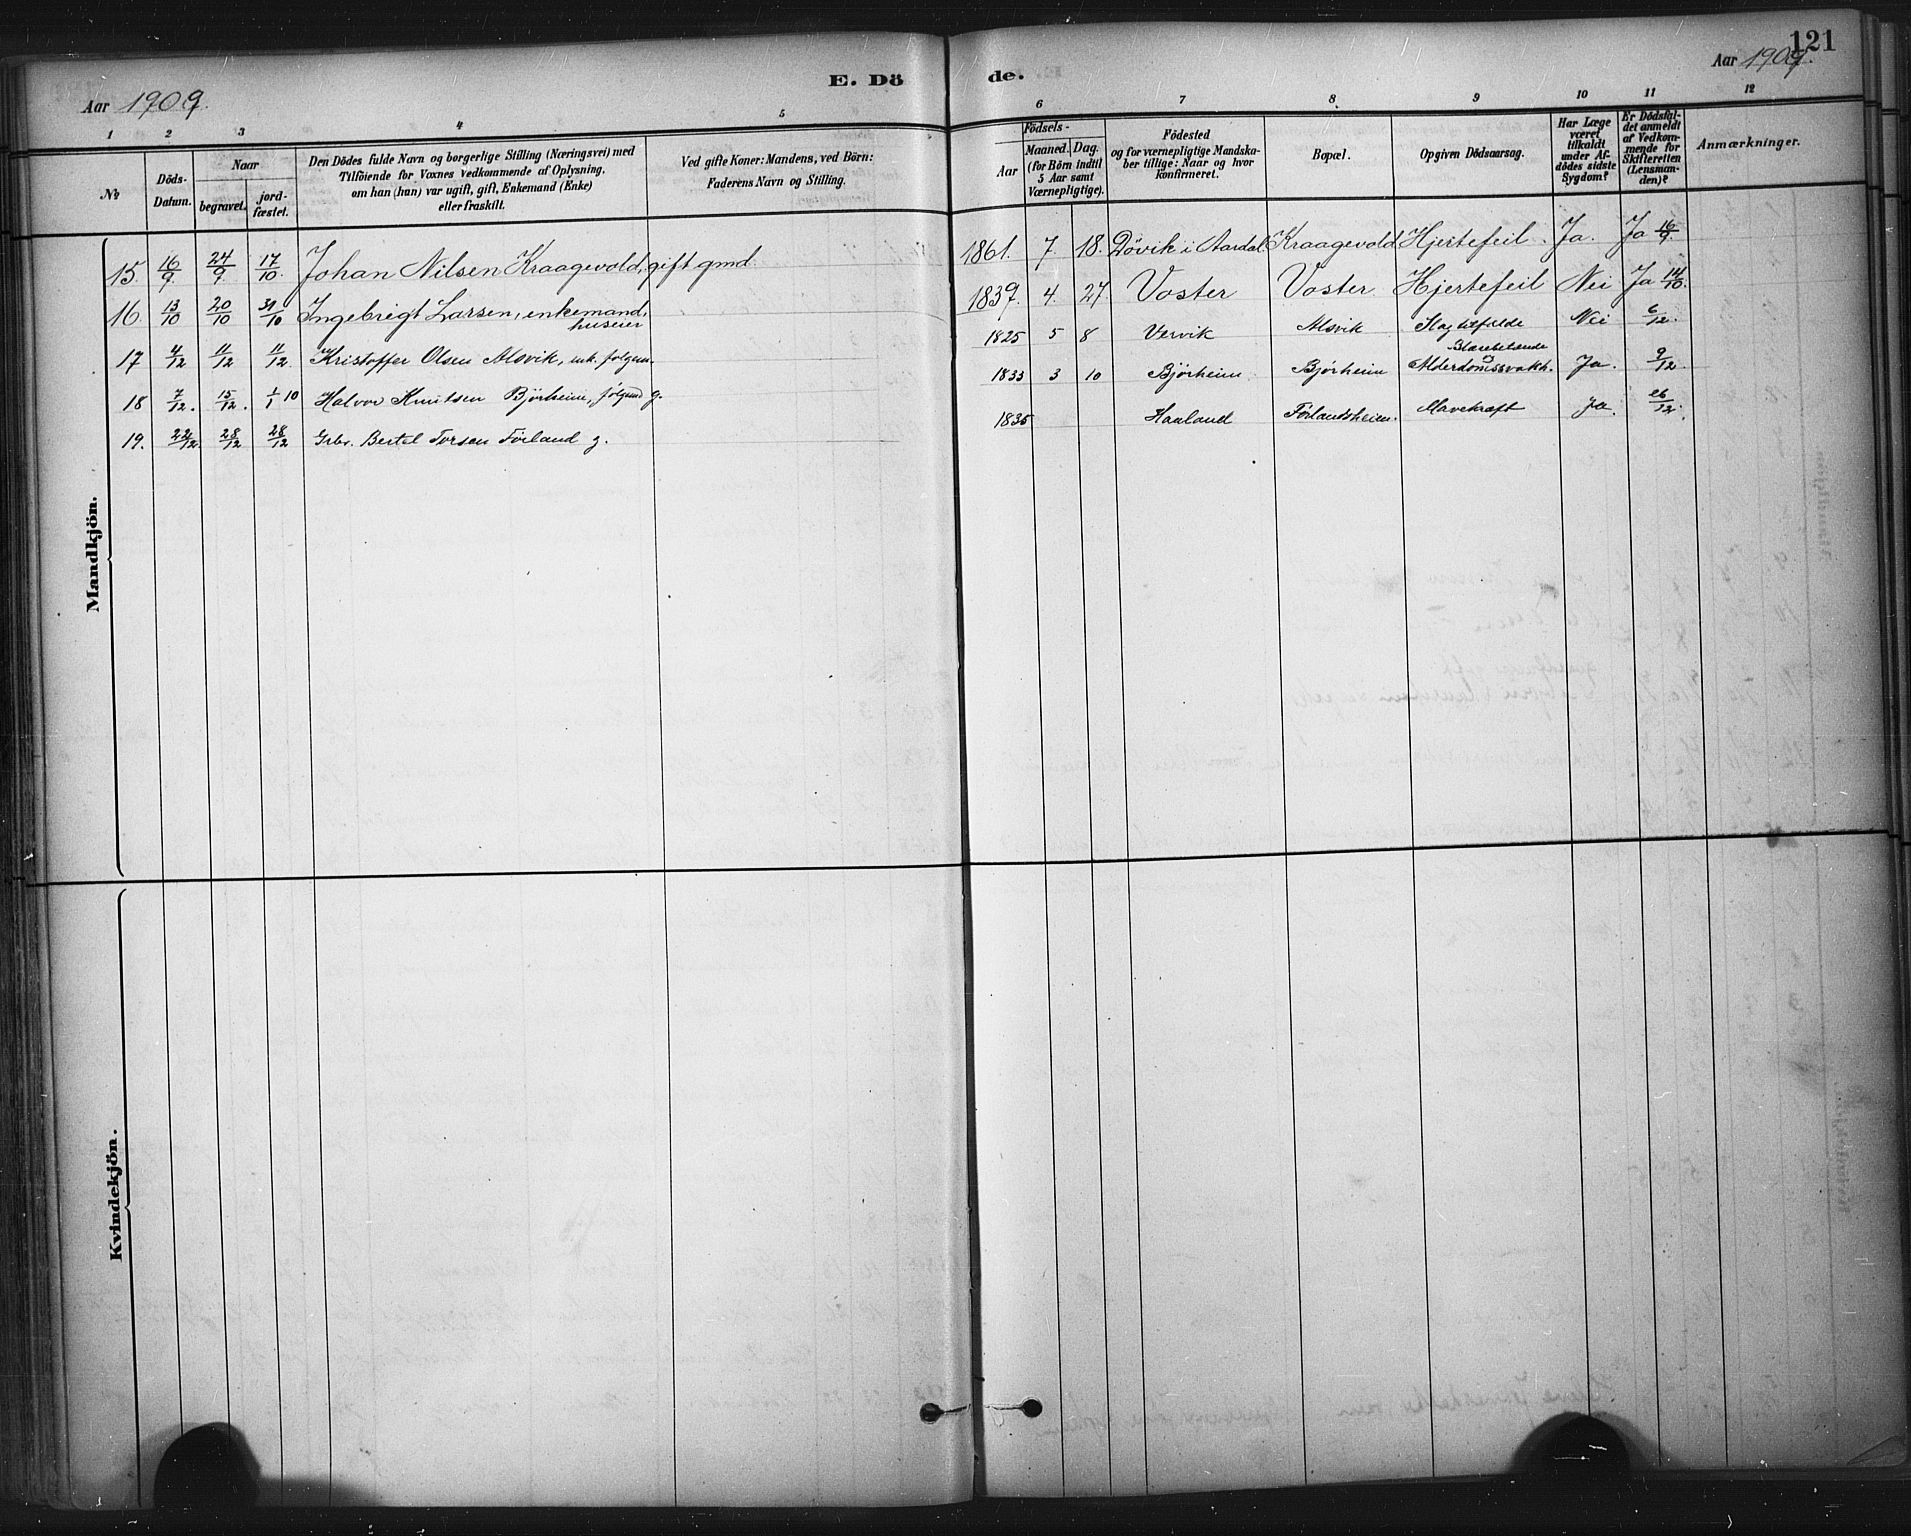 121
E. Dö de.
Aar 1909.
Aar 1909.
1 2 3 4 5 6 7 8 9 10 11 12
№
Döds-
Datum.
Naar
begravet.
jord-
fæstet.
Den Dödes fulde Navn og borgerlige Stilling (Næringsvei) med
Tilföiende for Voxnes Vedkommende af Oplysning,
om han (hun) var ugift, gift, Enkemand (Enke)
eller fraskilt.
Ved gifte Koner: Mandens, ved Börn:
Faderens Navn og Stilling.
Födsels-
Aar
Maaned. Dag.
(for Börn indtil
5 Aar samt
Værnepligtige).
Födested
og for værnepligtige Mandska-
ber tillige: Naar og hvor
konfirmeret.
Bopæl.
Opgiven Dödsaarsag.
Har Læge
været
tilkaldt
under Af-
dödes sidste
Sygdom?
Er Dödsfal-
det anmeldt
af Vedkom-
mende for
Skifteretten
(Lensman-
den)?
Anmærkninger.
Mandkjön.
15. 16/9 24/9. 17/10. Johan Nilsen Kraagevold, gift gmd. 1861. 7. 18. Døvik i Aardal Kraagevold Hjertefeil. Ja. Ja 16/9.
16. 13/10 20/10 31/10 Ingebrigt Larsen, enkemand, 1839. 4. 27. Voster Voster Hjertefeil Nei Ja 14/10.
huseier
17 4/12 11/12 11/12. Kristoffer Olsen Alsvik, enk. følgem. 1825 5 8 Vervik Alsvik Slagtilfælde Nei 6/12.
18 7/12. 15/12. 1/1 10 Halvor Knutsen Bjørheim, følgmd g. 1833 3 10 Bjørheim Bjørheim Alderdomssvakh. Ja. 9/12.
19. 22/12. 28/12 28/12 Grbr. Bertel Torsen Førland g. 1835 Haaland Førlandsheien. Mavekræft Ja. 26/12.
Kvindekjön.